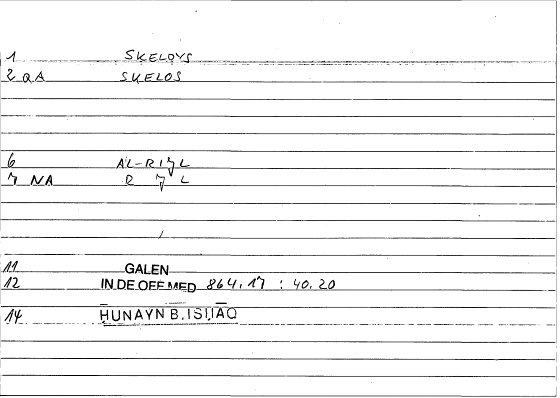 1 SKELOYS
2 QA SKELOS
6 AL-RIJL
7 NA R J L
11 GALEN
12 IN.DE.OFF.MED 864,17 : 40.20
14 HUNAYN B. ISḤAQ